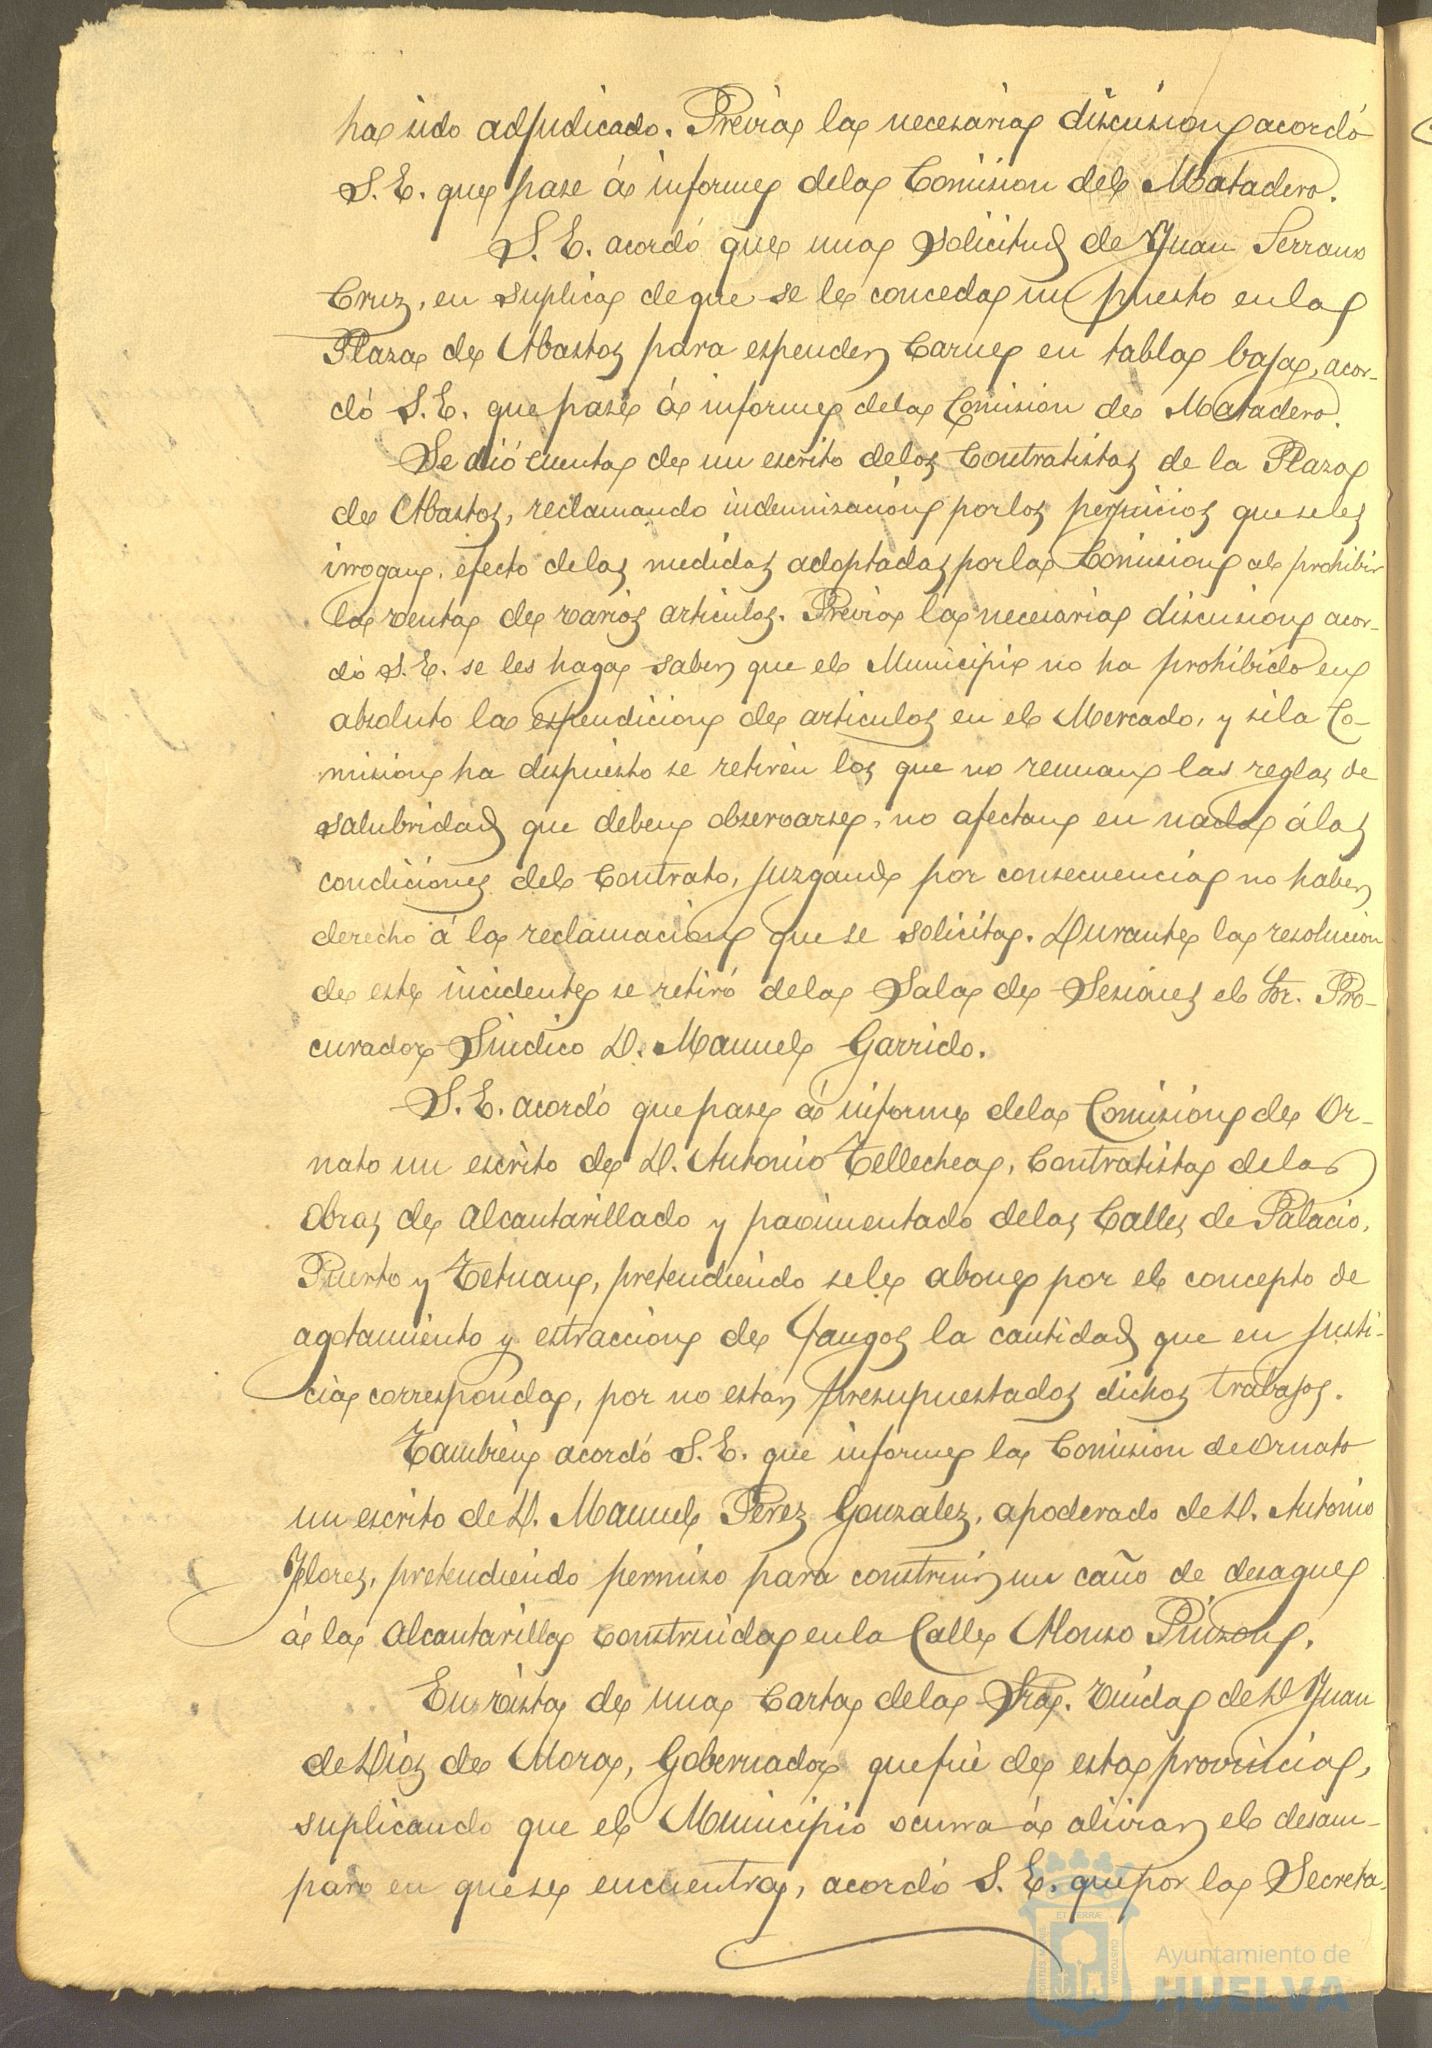 ha sido adjudicado. Previa la necesaria discusion acordó
S. E. que pase á informe dela Comision del Matadero.
S. E. acordó que una Solicitud de Juan Serrano
Cruz, en suplica de que se le conceda un puesto en la
Plaza de Abastos para espender Carne en tabla baja, acor-
dó S. E. que pase á informe dela Comision de Matadero.
Se dió cuenta de un escrito delos Contratistas de la Plaza
de Abastos, reclamando indemnisacion por los perjuicios que seles
irrogan, efecto delas medidas adoptadas por la Comision al prohibir
la venta de varios articulos. Previa la necesaria discusion acor-
dó S. E. se les haga saber que el Municipio no ha prohibido en
absoluto la espendicion de articulos en el Mercado, y sila Co-
mision ha dispuesto se retiren los que no reunan las reglas de
salubridad que deben observarse, no afectan en nada álas
condiciones del Contrato, juzgando por consecuencia no haber
derecho á la reclamacion que se solicita. Durante la resolucion
de este incidente se retiró dela Sala de Sesiones el Sor. Pro-
curador Sindico D. Manuel Garrido.
S. E. acordó que pase á informe dela Comision de Or-
nato un escrito de D. Antonio Tellechea, Contratista delas
Obras de Alcantarillado y pavimentado delas Calles de Palacio,
Puerto y Tetuan, pretendiendo sele abone por el concepto de
agotamiento y estraccion de Fangos la cantidad que en justi-
cia corresponda, por no estar presupuestados dichos trabajos.
Tambien acordó S. E. que informe la Comision de Ornato
un escrito de D. Manuel Perez Gonzalez, apoderado de D. Antonio
Flores, pretendiendo permiso para construir un caño de desague
á la Alcantarilla construida en la Calle Alonso Pinzon.
En vista de una Carta dela Sra. Viuda de D Juan
de Dios de Mora, Gobernador que fué de esta provincia,
suplicando que el Municipio ocurra á aliviar el desam-
paro en que se encuentra, acordó S. E. que por la Secreta-
Ayuntamiento de
HUELVA